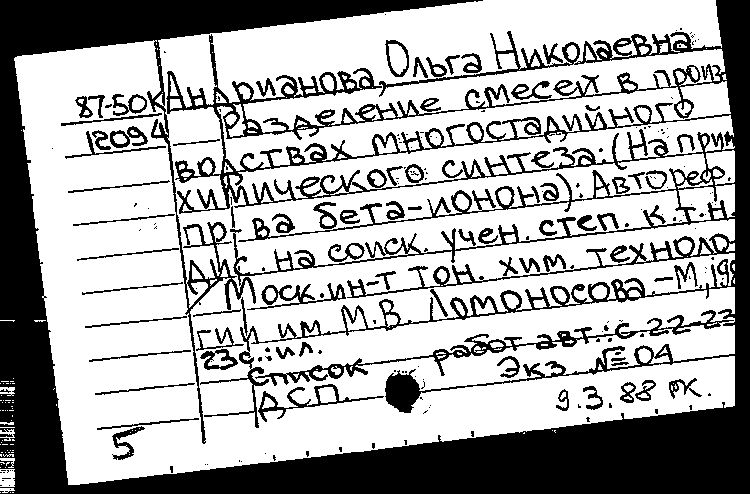 87-50к Андрианова, Ольга Николаевна
12094 Разделение смесей в произ-
водствах многостадийного
химического синтеза: (На прим.
пр-ва бета-ионона): Автореф.
дис. на соиск. учен. степ. к.т.н.
Моск. ин-т тон. хим. техноло-
гии им. М.В. Ломоносова.-М., 198
23с.: ил.
Список работ авт.: с. 22-23
ДСП. Экз. № 04
9.3.88 РК.
5